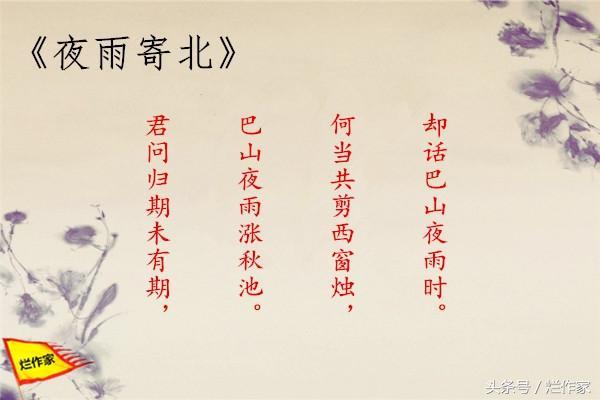 《夜雨寄北》
君问归期未有期，
巴山夜雨涨秋池。
何当共剪西窗烛，
却话巴山夜雨时。
烂作家
头条号 / 烂作家